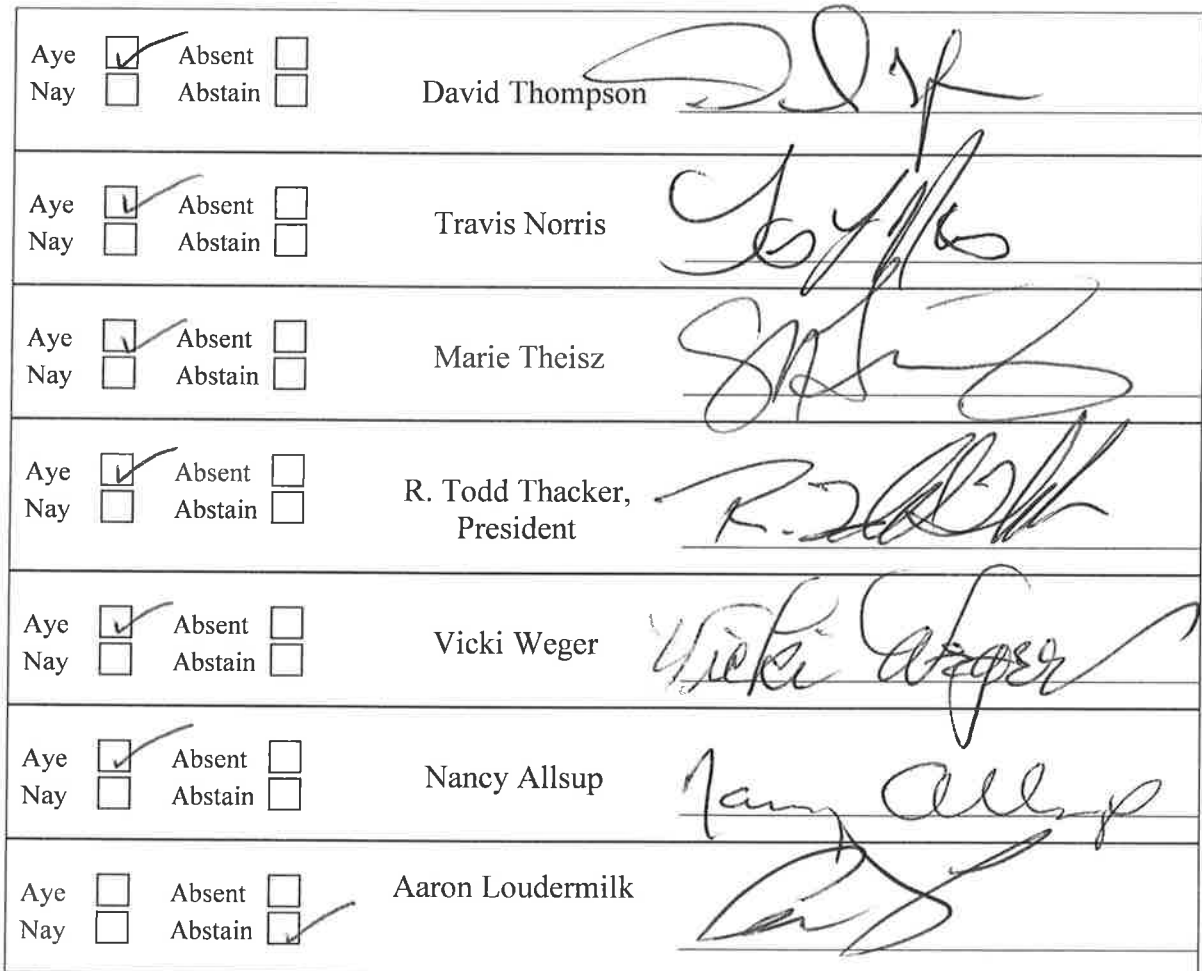 Aye ☑ Absent ☐
Nay ☐ Abstain ☐
David Thompson
Aye ☑ Absent ☐
Nay ☐ Abstain ☐
Travis Norris
Aye ☑ Absent ☐
Nay ☐ Abstain ☐
Marie Theisz
Aye ☑ Absent ☐
Nay ☐ Abstain ☐
R. Todd Thacker,
President
Aye ☑ Absent ☐
Nay ☐ Abstain ☐
Vicki Weger
Vicki Weger
Aye ☑ Absent ☐
Nay ☐ Abstain ☐
Nancy Allsup
Nancy Allsup
Aye ☐ Absent ☐
Nay ☐ Abstain ☑
Aaron Loudermilk